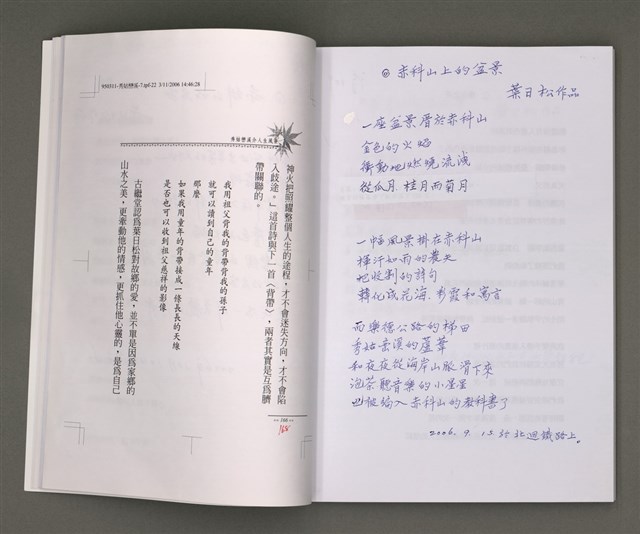 950311-秀姑巒溪-7.sp6:22 3/11/2006 14:46:28
秀姑巒溪介人生風景
神火把照耀整個人生的途程，才不會迷失方向，才不會陷
入歧途。」這首詩與下一首〈背帶〉，兩者其實是互為臍
帶關聯的。
我用祖父背我的背帶背我的孫子
就可以讀到自己的童年
那麼
如果我用童年的背帶接成一條長長的天線
是否也可以收到祖父慈祥的影像
古繼堂認為葉日松對故鄉的愛，並不單是因為家鄉的
山水之美，更牽動他的情感，更抓住他心靈的，是為自己
168
@ 赤科山上的盆景
葉日松作品
一座盆景厝於赤科山
金色的火焰
衝動地燃燒 流淺
從瓜月 桂月而菊月
一幅風景掛在赤科山
揮汗如雨的農夫
把收割的詩句
轉化成花海、彩霞和寓言
而樂德公路的梯田
秀姑巒溪的蘆葦
和夜夜從海岸山脈 滑下來
泡茶 聽音樂的小星星
也被編入赤科山的教科書了
2006. 9. 13 於北迴鐵路上。